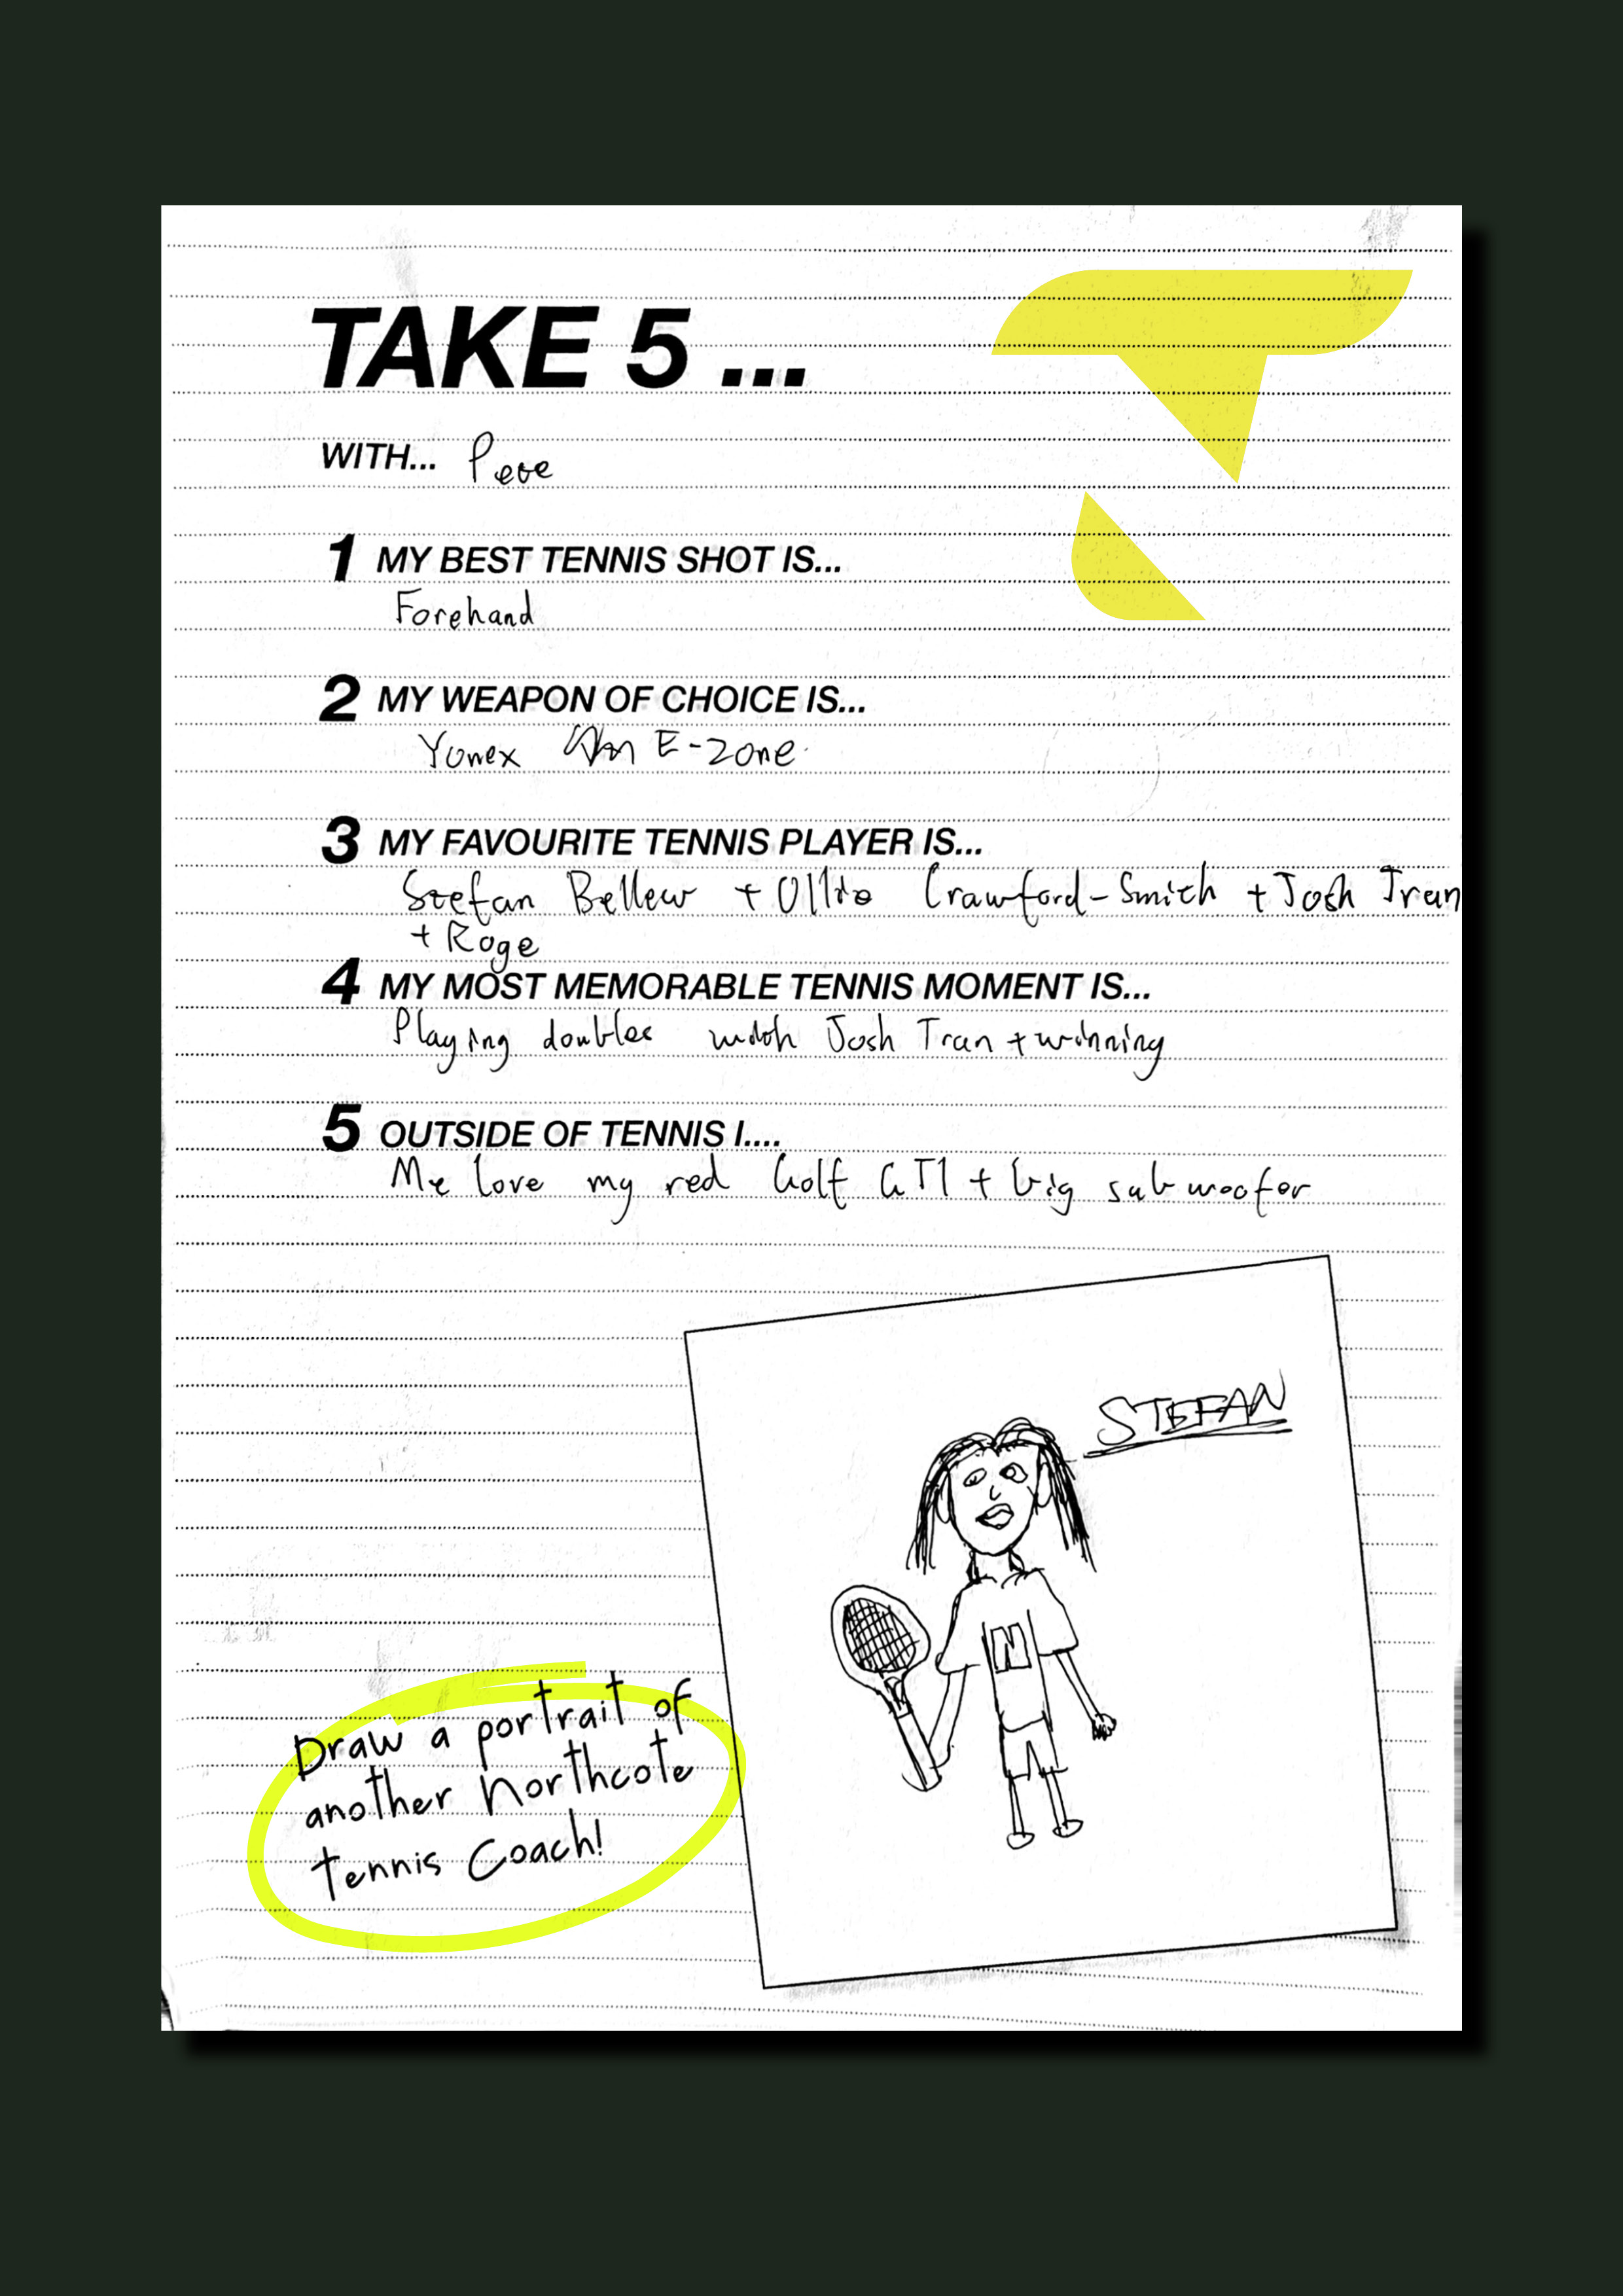 TAKE 5 ...
WITH... Pete
1 MY BEST TENNIS SHOT IS...
Forehand
2 MY WEAPON OF CHOICE IS...
Yonex E-zone.
3 MY FAVOURITE TENNIS PLAYER IS...
Stefan Bellew + Ollie Crawford-Smith + Josh Tran
+ Roge
4 MY MOST MEMORABLE TENNIS MOMENT IS...
Playing doubles with Josh Tran + winning
5 OUTSIDE OF TENNIS I....
Me love my red Golf GTI + big subwoofer
STEFAN
N
Draw a portrait of
another Northcote
Tennis Coach!